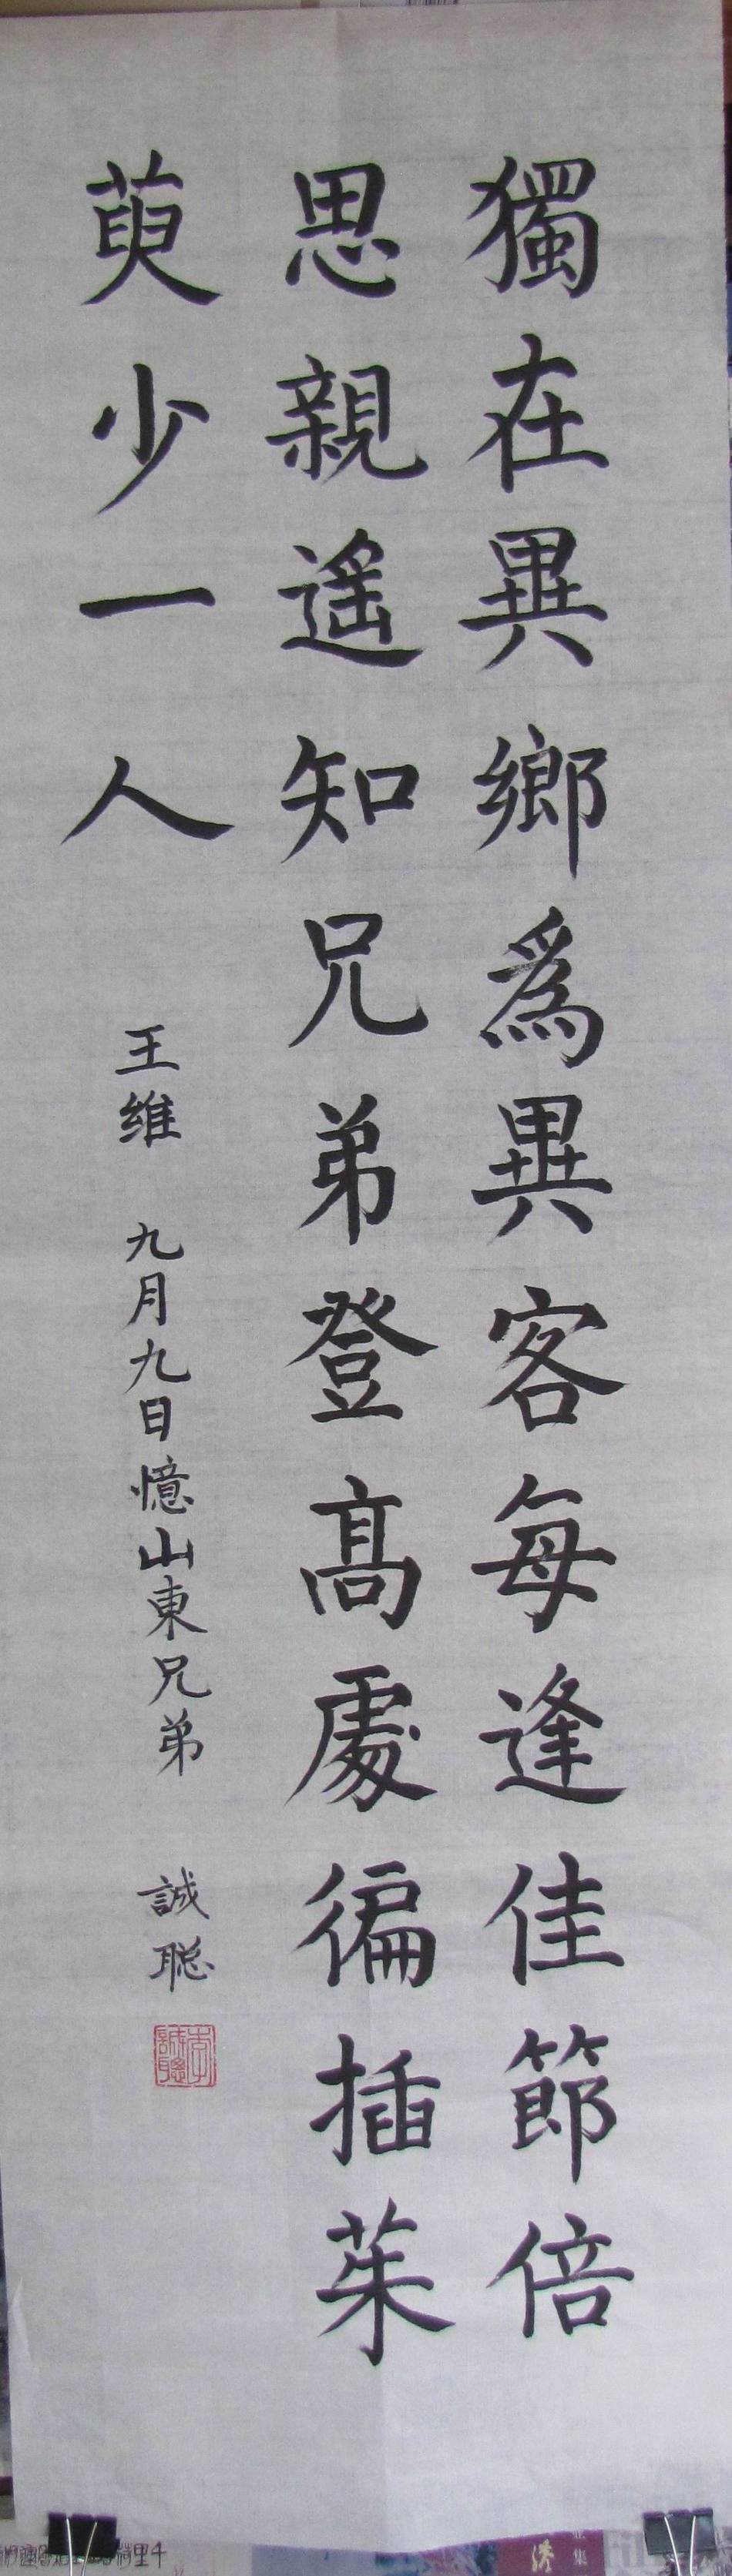 獨在異鄉爲異客每逢佳節倍
思親遥知兄弟登高處徧插茱
萸少一人
王维 九月九日憶山東兄弟 誠聪
李誠聰